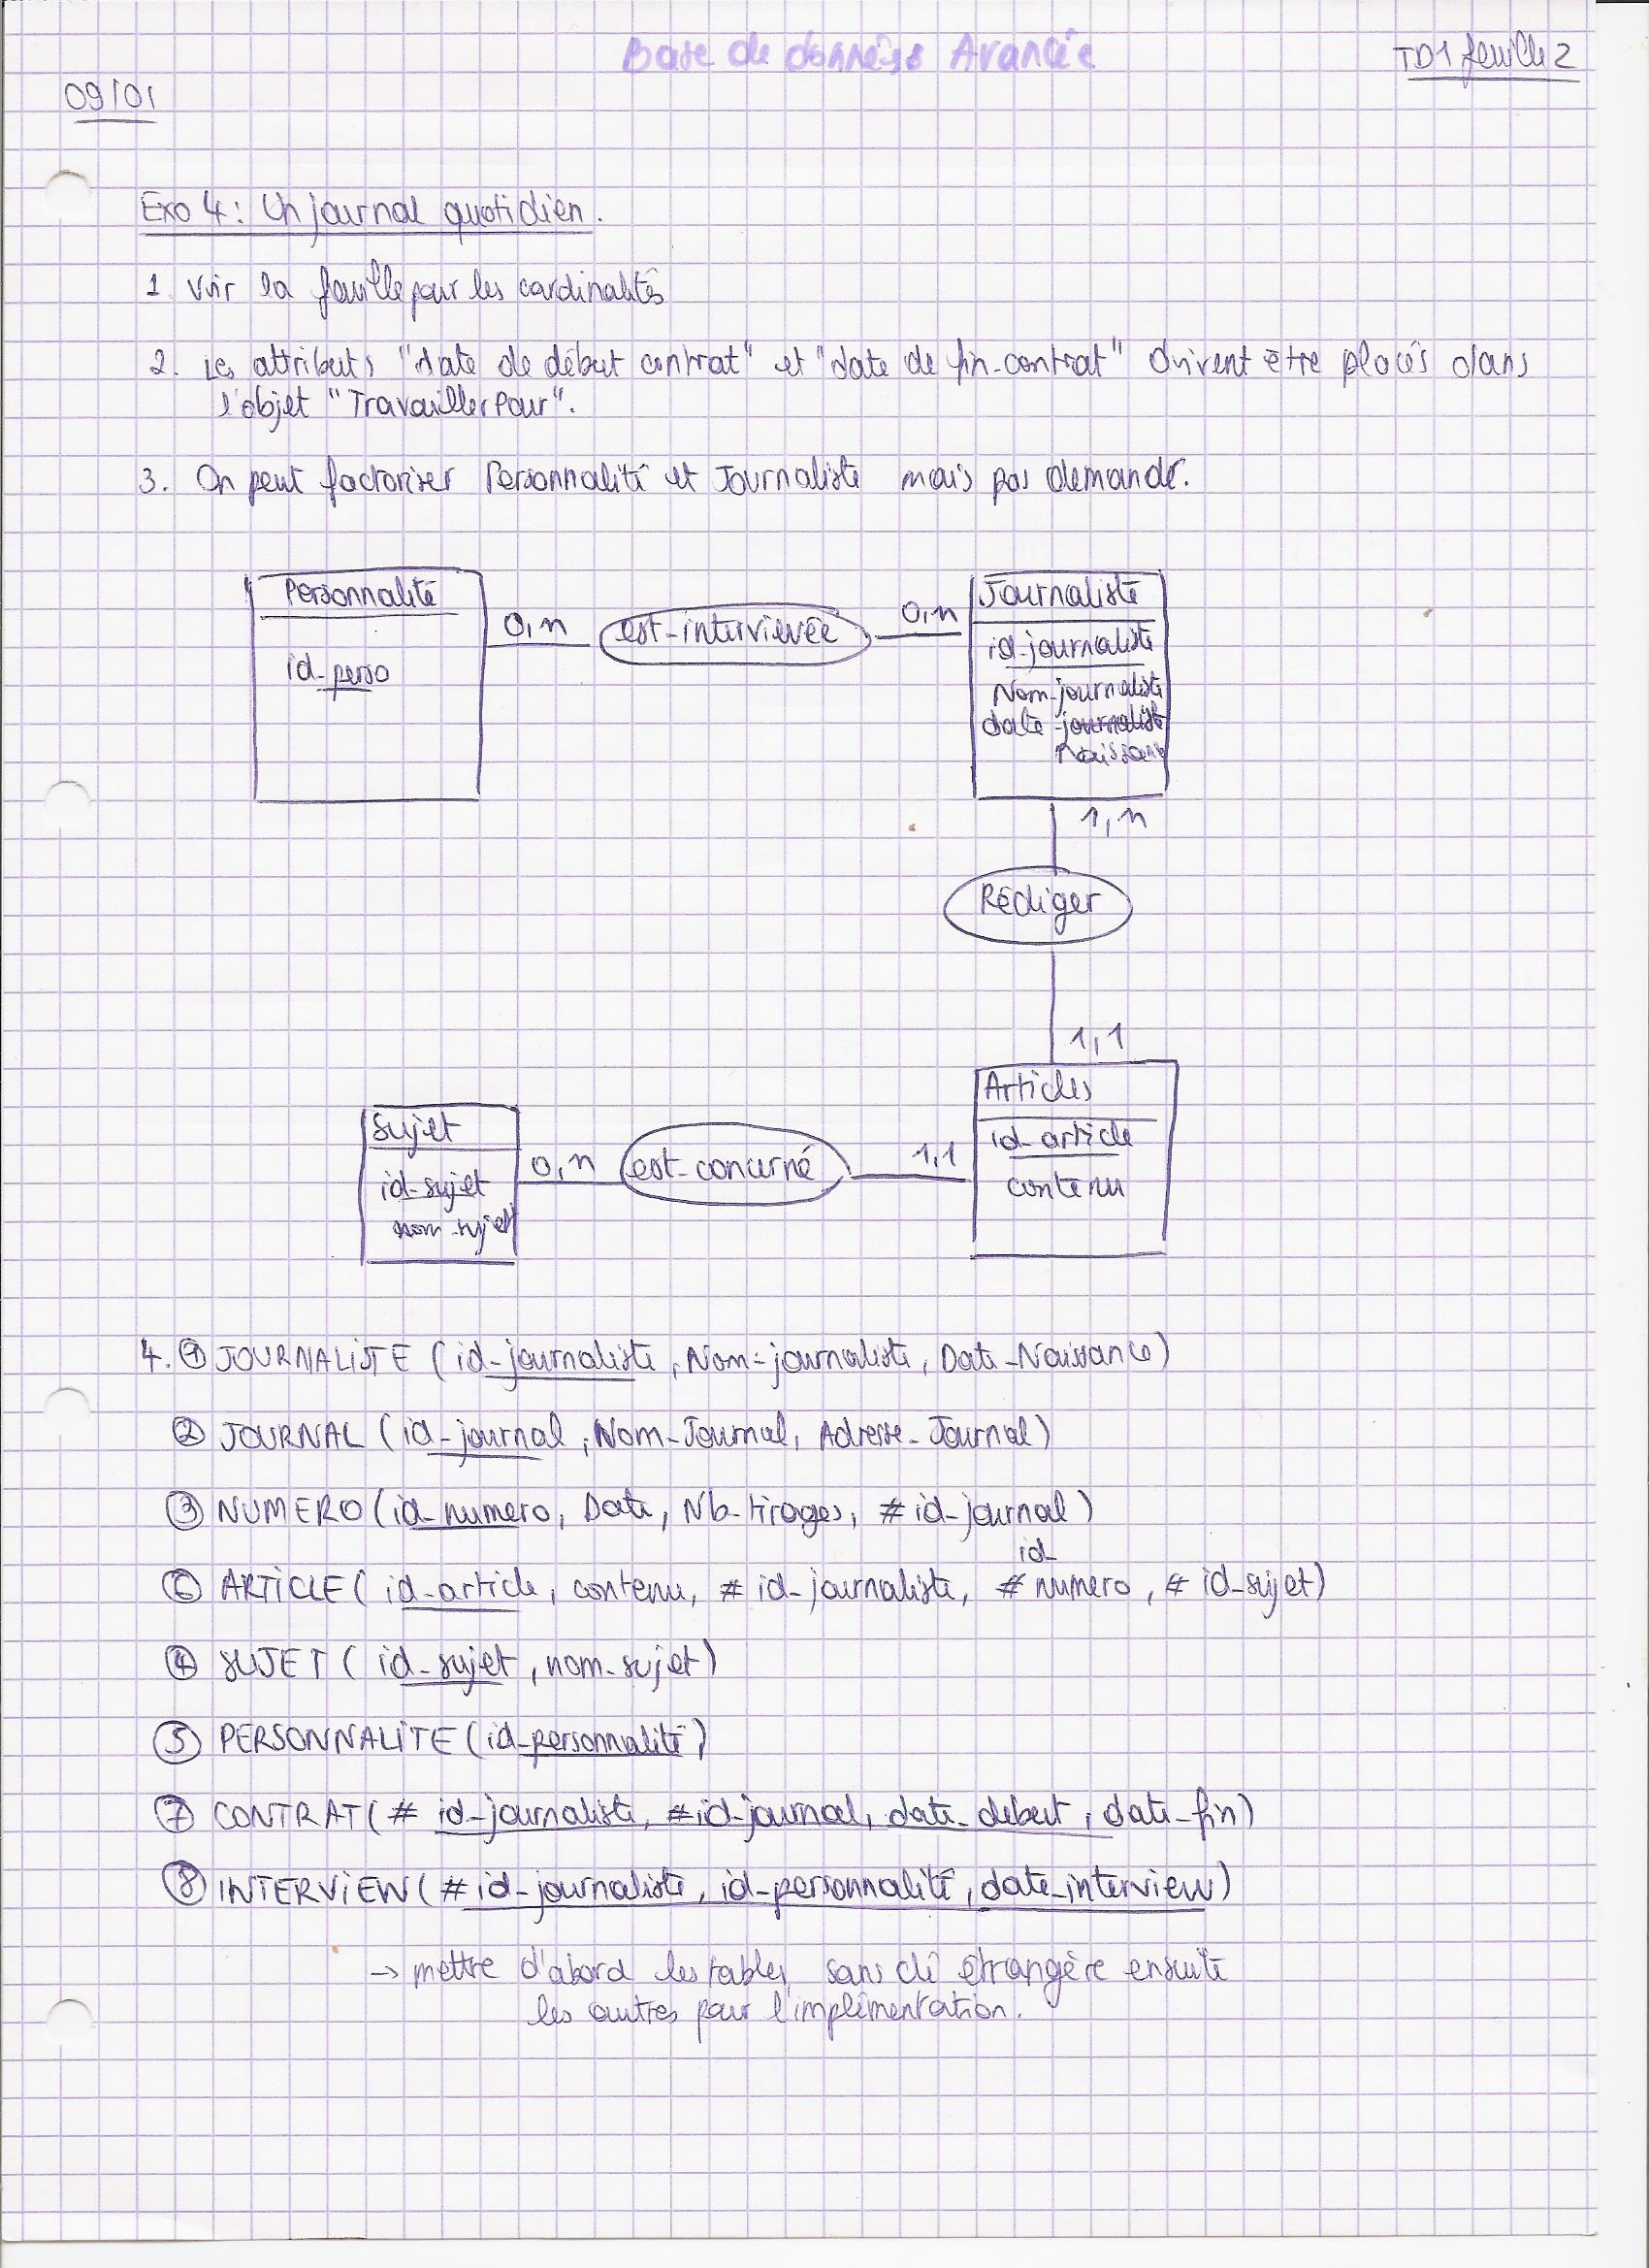 Base de données Avancée
TD1 feuille 2
09/01
Exo 4: Un journal quotidien.
1. Voir la feuille pour les cardinalités
2. Les attributs "date de début contrat" et "date de fin-contrat" doivent être placés dans
l'objet "TravaillerPour".
3. On peut factoriser Personnalité et Journaliste mais pas demandé.
Personnalité
id-perso
0,n
est-interviewée
0,n
Journaliste
id-journaliste
Nom-journaliste
date-journaliste
Naissance
1,n
Rédiger
1,1
Articles
id-article
contenu
Sujet
id-sujet
nom-sujet
0,n
est-concerné
1,1
4. ① JOURNALISTE (id-journaliste, Nom-journaliste, Date-Naissance)
② JOURNAL (id-journal, Nom-Journal, Adresse-Journal)
③ NUMERO (id-numero, Date, Nb-tirages, # id-journal)
id-
⑥ ARTICLE (id-article, contenu, # id-journaliste, # numero, # id-sujet)
④ SUJET (id-sujet, nom-sujet)
⑤ PERSONNALITE (id-personnalité)
⑦ CONTRAT (# id-journaliste, #id-journal, date-debut, date-fin)
⑧ INTERVIEW (# id-journaliste, id-personnalité, date-interview)
→ mettre d'abord les tables sans clé étrangère ensuite
les autres pour l'implémentation.